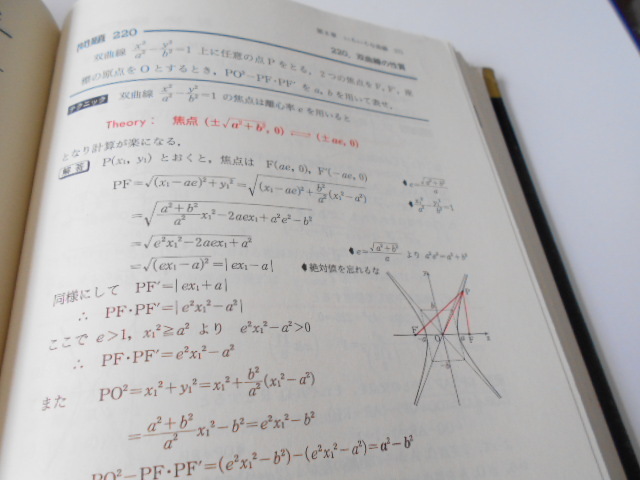 220. 双曲線の性質
220
双曲線 x²/a²−y²/b²=1 上に任意の点Pをとる。2つの焦点をF, F′, 座
標の原点をOとするとき, PO²−PF·PF′ を a, b を用いて表せ。
テクニック 双曲線 x²/a²−y²/b²=1 の焦点は離心率 e を用いると
Theory: 焦点 (±√(a²+b²), 0) ⟺ (±ae, 0)
となり計算が楽になる。
解答 P(x₁, y₁) とおくと, 焦点は F(ae, 0), F′(−ae, 0)
PF=√((x₁−ae)²+y₁²)=√((x₁−ae)²+b²/a²(x₁²−a²))
e=√(a²+b²)/a
x₁²/a²−y₁²/b²=1
=√((a²+b²)/a² x₁²−2aex₁+a²e²−b²)
=√(e²x₁²−2aex₁+a²)
e=√(a²+b²)/a より a²e²=a²+b²
=√((ex₁−a)²)=|ex₁−a|
絶対値を忘れるな
同様にして PF′=|ex₁+a|
∴ PF·PF′=|e²x₁²−a²|
ここで e>1, x₁²≧a² より e²x₁²−a²>0
∴ PF·PF′=e²x₁²−a²
また PO²=x₁²+y₁²=x₁²+b²/a²(x₁²−a²)
=(a²+b²)/a² x₁²−b²=e²x₁²−b²
PO²−PF·PF′=(e²x₁²−b²)−(e²x₁²−a²)=a²−b²
y
P
F′
O
F
x